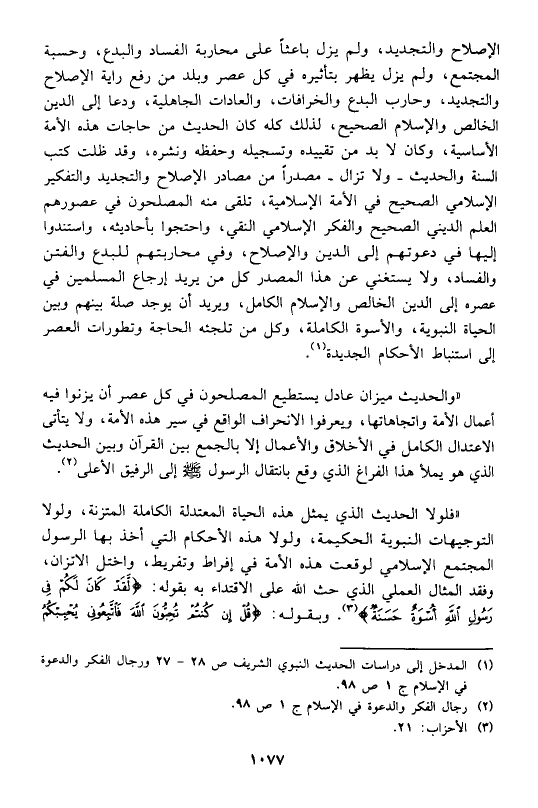 الإصلاح والتجديد، ولم يزل باعثاً على محاربة الفساد والبدع، وحسبة
المجتمع، ولم يزل يظهر بتأثيره في كل عصر وبلد من رفع راية الإصلاح
والتجديد، وحارب البدع والخرافات، والعادات الجاهلية، ودعا إلى الدين
الخالص والإسلام الصحيح، لذلك كله كان الحديث من حاجات هذه الأمة
الأساسية، وكان لا بد من تقييده وتسجيله وحفظه ونشره، وقد ظلت كتب
السنة والحديث ـ ولا تزال ـ مصدراً من مصادر الإصلاح والتجديد والتفكير
الإسلامي الصحيح في الأمة الإسلامية، تلقى منه المصلحون في عصورهم
العلم الديني الصحيح والفكر الإسلامي النقي، واحتجوا بأحاديثه، واستندوا
إليها في دعوتهم إلى الدين والإصلاح، وفي محاربتهم للبدع والفتن
والفساد، ولا يستغني عن هذا المصدر كل من يريد إرجاع المسلمين في
عصره إلى الدين الخالص والإسلام الكامل، ويريد أن يوجد صلة بينهم وبين
الحياة النبوية، والأسوة الكاملة، وكل من تلجئه الحاجة وتطورات العصر
إلى استنباط الأحكام الجديدة(١).
«والحديث ميزان عادل يستطيع المصلحون في كل عصر أن يزنوا فيه
أعمال الأمة واتجاهاتها، ويعرفوا الانحراف الواقع في سير هذه الأمة، ولا يتأتى
الاعتدال الكامل في الأخلاق والأعمال إلا بالجمع بين القرآن وبين الحديث
الذي هو يملأ هذا الفراغ الذي وقع بانتقال الرسول ﷺ إلى الرفيق الأعلى(٢).
«فلولا الحديث الذي يمثل هذه الحياة المعتدلة الكاملة المتزنة، ولولا
التوجيهات النبوية الحكيمة، ولولا هذه الأحكام التي أخذ بها الرسول
المجتمع الإسلامي لوقعت هذه الأمة في إفراط وتفريط، واختل الاتزان،
وفقد المثال العملي الذي حث الله على الاقتداء به بقوله: ﴿لَّقَدْ كَانَ لَكُمْ فِي
رَسُولِ اللَّهِ أُسْوَةٌ حَسَنَةٌ﴾(٣). وبقوله: ﴿قُلْ إِن كُنتُمْ تُحِبُّونَ اللَّهَ فَاتَّبِعُونِي يُحْبِبْكُمُ
(١) المدخل إلى دراسات الحديث النبوي الشريف ص ٢٨ - ٢٧ ورجال الفكر والدعوة
في الإسلام ج ١ ص ٩٨.
(٢) رجال الفكر والدعوة في الإسلام ج ١ ص ٩٨.
(٣) الأحزاب: ٢١.
١٠٧٧